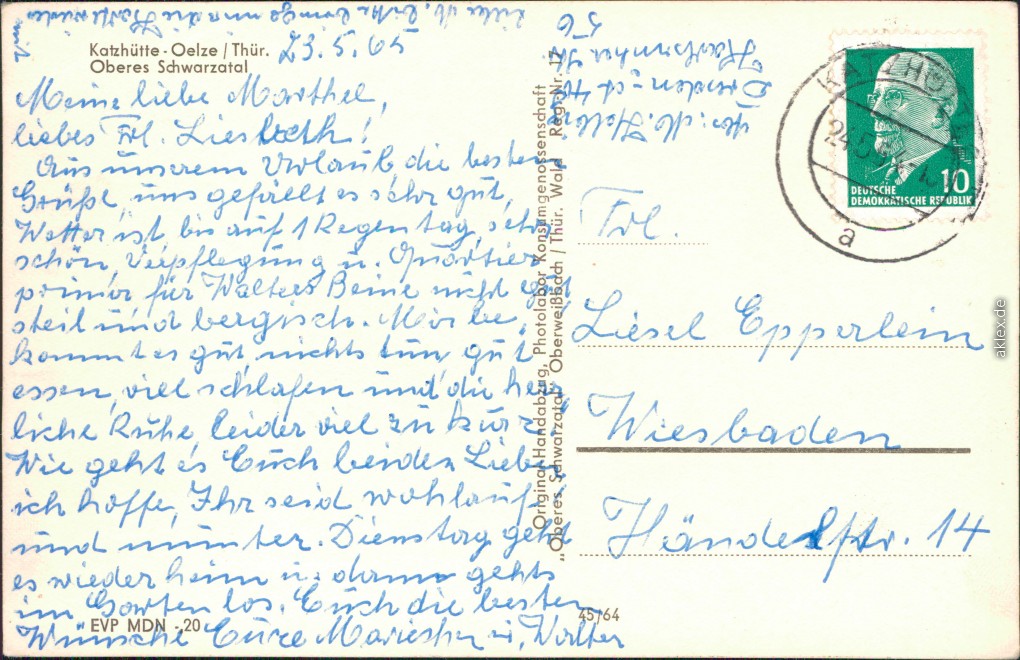 Katzhütte - Oelze / Thür.
Oberes Schwarzatal
23.5.65
Meine liebe Marthel,
liebes Frl. Liesbeth!
Aus unserem Urlaub die besten
Grüße, uns gefällt es sehr gut,
Wetter ist bis auf 1 Regentag sehr
schön, Verpflegung u. Quartier
prima für Walters Beine nicht
steil und bergisch. Mir be,
kommt es gut, nichts tun, gut
essen, viel schlafen und die herr
liche Ruhe, leider viel zu kurz.
Wie geht es Euch beiden Lieben
ich hoffe, Ihr seid wohlauf
und munter. Dienstag geht
es wieder heim u. dann gehts
im Garten los. Euch die besten
Wünsche Eure Mariechen u. Walter
EVP MDN -.20
Original-Handabzug, Photolabor Konsumgenossenschaft
„Oberes Schwarzatal" Oberweißbach / Thür. Wald Reg.-Nr. 17
45/64
Dresden
56
DEUTSCHE
DEMOKRATISCHE REPUBLIK
10
KATZHÜTTE
a
Frl.
Liesel Epperlein
Wiesbaden
Händelstr. 14
aklex.de